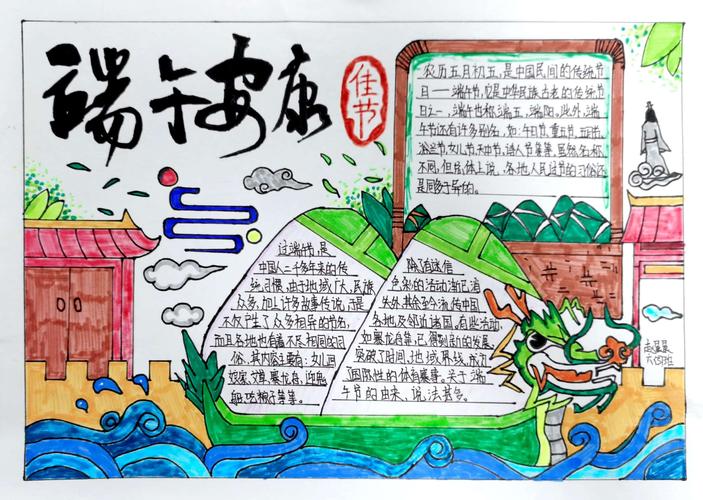 端午安康
佳节
农历五月初五,是中国民间的传统节
日——端午节,它是中华民族古老的传统节
日之一。端午也称端五,端阳。此外,端
午节还有许多别名,如:午日节、重五节、五月节、
浴兰节、女儿节、天中节、诗人节等等。虽然名称
不同,但总体上说,各地人民过节的习俗还
是同多于异的。
过端午节,是
中国人二千多年来的传
统习惯,由于地域广大,民族
众多,加上许多故事传说,于是
不仅产生了众多相异的节名,
而且各地也有着不尽相同的习
俗。其内容主要有:女儿回
娘家,
赛龙舟,
等等。
除了有迷信
色彩的活动渐已消
失外,其余至今流传中国
各地及邻近诸国。有些活动,
如赛龙舟等,已得到新的发展,
突破了时间、地域界线,成为了
国际性的体育赛事。关于端
午节的由来,说法甚多。
六(3)班